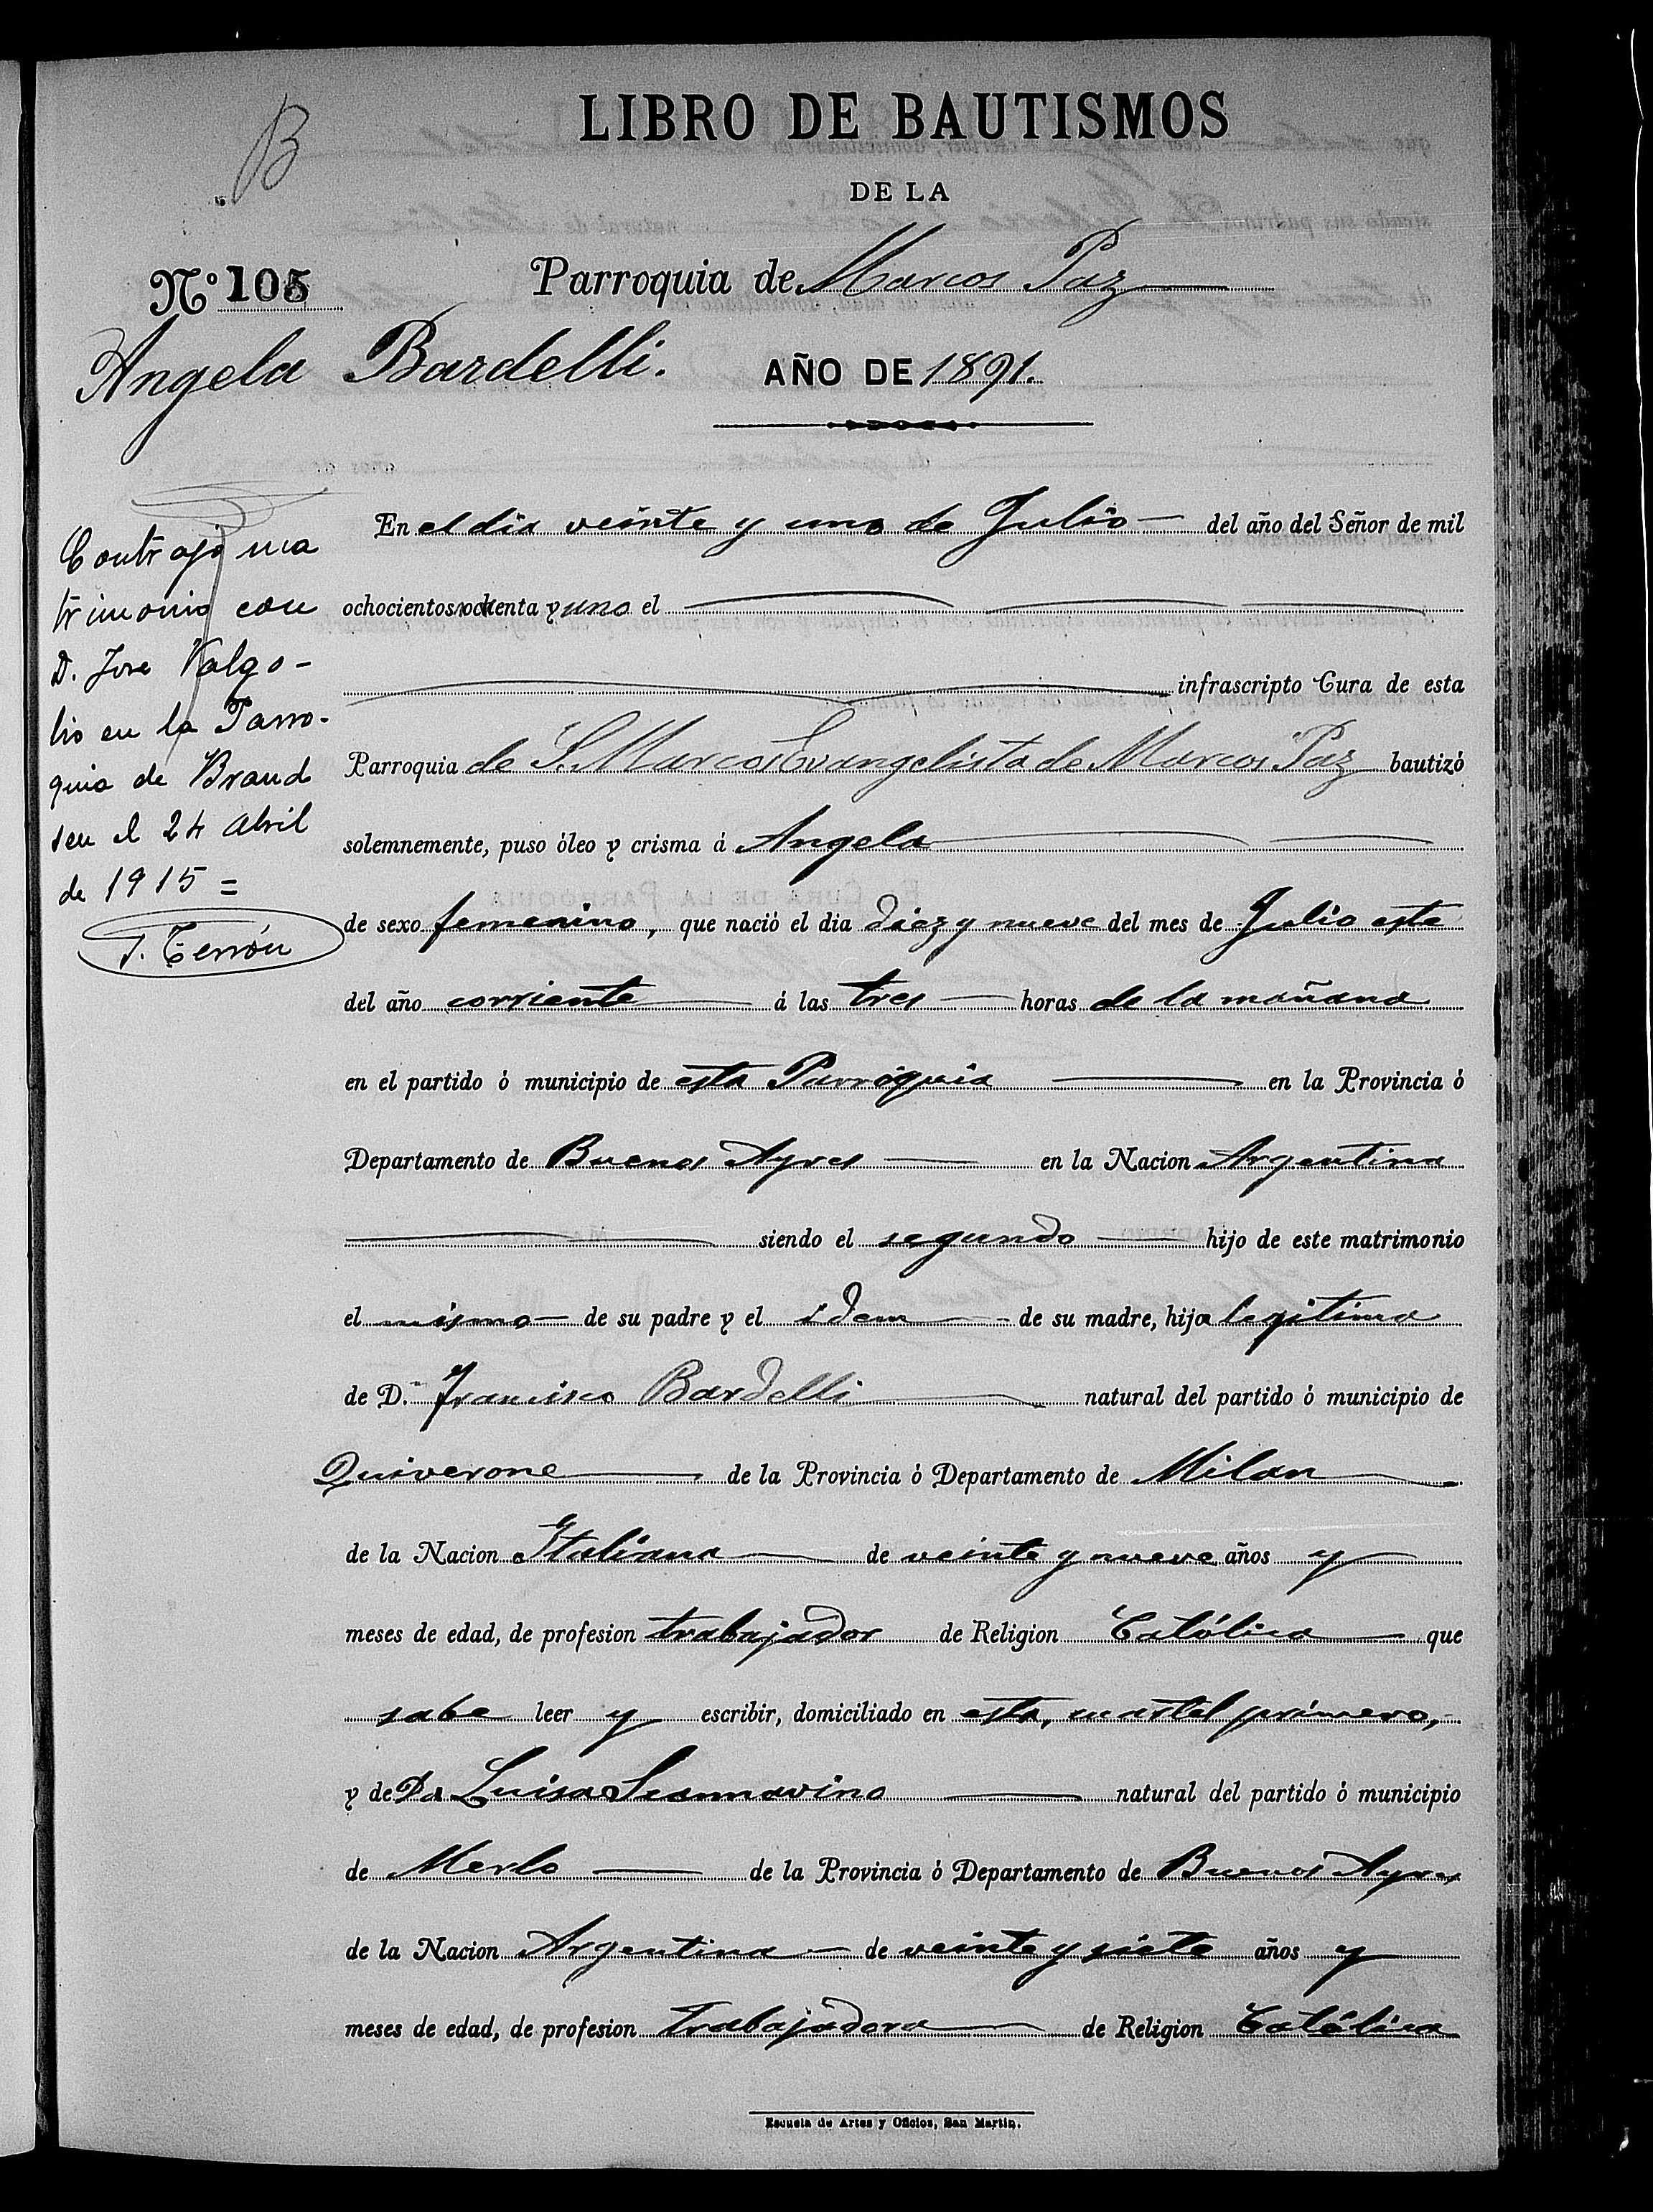 B
LIBRO DE BAUTISMOS
DE LA
Nº 105
Parroquia de Marcos Paz
Angela Bardelli.
AÑO DE 1891.
Contrajo ma
trimonio con
D. Jose Valgo-
lio en la Parro-
quia de Brand
sen el 24 abril
de 1915 =
J. Terrón
En el dia veinte y uno de Julio del año del Señor de mil
ochocientos nochenta y uno el
infrascripto Cura de esta
Parroquia de S. Marcos Evangelista de Marcos Paz bautizó
solemnemente, puso óleo y crisma á Angela
de sexo femenino, que nació el dia diez y nueve del mes de Julio este
del año corriente á las tres horas de la mañana
en el partido ó municipio de esta Parroquia en la Provincia ó
Departamento de Buenos Ayres en la Nacion Argentina
siendo el segundo hijo de este matrimonio
el mismo de su padre y el idem de su madre, hija legitima
de D. Francisco Bardelli natural del partido ó municipio de
Quiverone de la Provincia ó Departamento de Milan
de la Nacion Italiana de veinte y nueve años y
meses de edad, de profesion trabajador de Religion Católica que
sabe leer y escribir, domiciliado en esta, cuartel primero,
y de Da Luisa natural del partido ó municipio
de Merlo de la Provincia ó Departamento de Buenos Ayres
de la Nacion Argentina de veinte y siete años y
meses de edad, de profesion trabajadora de Religion Católica
Escuela de Artes y Oficios, San Martin.